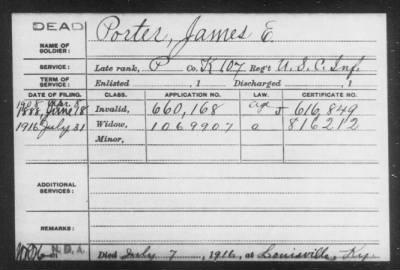 DEAD
NAME OF SOLDIER: Porter, James E.
SERVICE: Late rank, P Co. K 107 Reg't U. S. C. Inf.
TERM OF SERVICE: Enlisted , 1 Discharged , 1
DATE OF FILING. CLASS. APPLICATION NO. LAW. CERTIFICATE NO.
1908 Mar. 5
1888, June 18 Invalid, 660,168 age J 616,849
1916 July 31 Widow, 1069907 a 816212
Minor,
ADDITIONAL SERVICES:
REMARKS:
N.D.A. Died July 7, 1916, at Louisville, Ky.